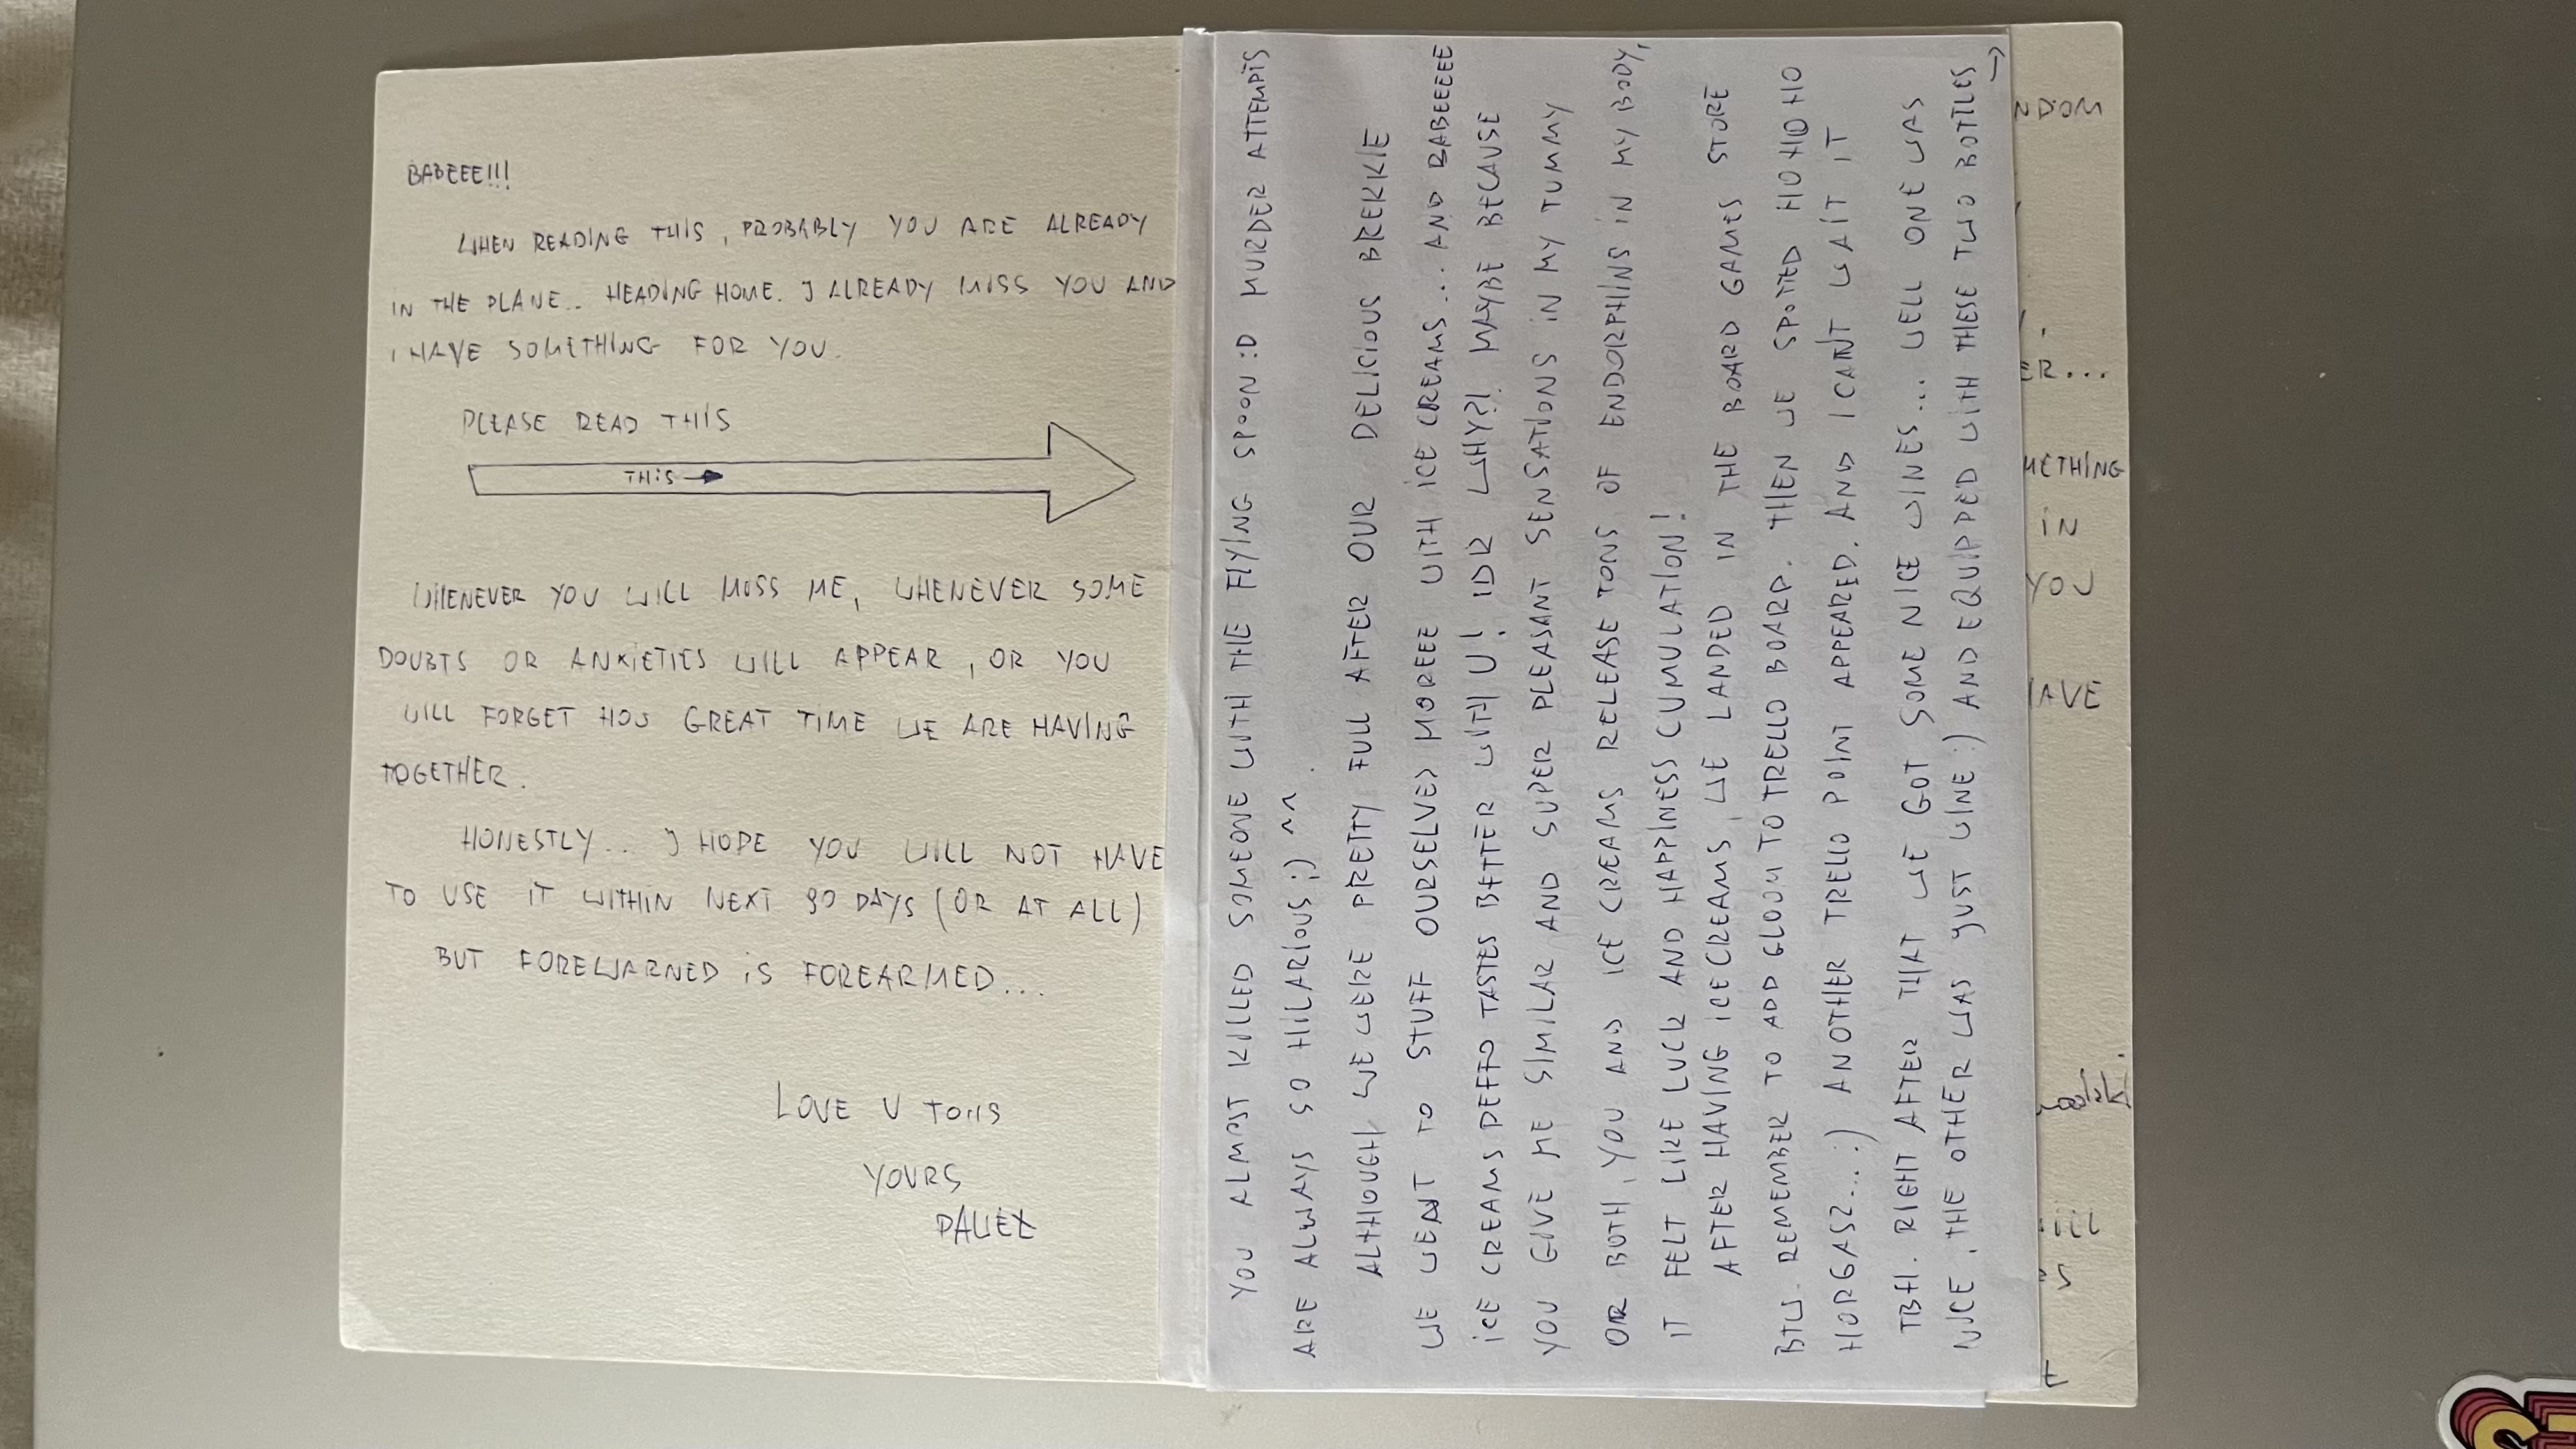 BABEEE!!!
WHEN READING THIS, PROBABLY YOU ARE ALREADY
IN THE PLANE.. HEADING HOME. I ALREADY MISS YOU AND
I HAVE SOMETHING FOR YOU.
PLEASE READ THIS
THIS →
WHENEVER YOU WILL MISS ME, WHENEVER SOME
DOUBTS OR ANXIETIES WILL APPEAR, OR YOU
WILL FORGET HOW GREAT TIME WE ARE HAVING
TOGETHER.
HONESTLY... I HOPE YOU WILL NOT HAVE
TO USE IT WITHIN NEXT 90 DAYS (OR AT ALL)
BUT FOREWARNED IS FOREARMED...
LOVE U TONS
YOURS
YOU ALMOST KILLED SOMEONE WITH THE FLYING SPOON :D MURDER ATTEMPTS
ARE ALWAYS SO HILARIOUS ;) ^^
ALTHOUGH WE WERE PRETTY FULL AFTER OUR DELICIOUS BREKKIE
WE WENT TO STUFF OURSELVES MOREEE WITH ICE CREAMS... AND BABEEEEE
ICE CREAMS DEFFO TASTES BETTER WITH U! IDK WHY?! MAYBE BECAUSE
YOU GIVE ME SIMILAR AND SUPER PLEASANT SENSATIONS IN MY TUMMY
OR BOTH, YOU AND ICE CREAMS RELEASE TONS OF ENDORPHINS IN MY BODY,
IT FELT LIKE LUCK AND HAPPINESS CUMULATION!
AFTER HAVING ICE CREAMS, WE LANDED IN THE BOARD GAMES STORE
BTW. REMEMBER TO ADD GLOOM TO TRELLO BOARD. THEN WE SPOTTED HO HO HO
HORGASZ...:) ANOTHER TRELLO POINT APPEARED. AND I CANT WAIT IT
TBH. RIGHT AFTER THAT WE GOT SOME NICE WINES... WELL ONE WAS
NICE. THE OTHER WAS JUST WINE :) AND EQUIPPED WITH THESE TWO BOTTLES
→
ER...
IN
YOU